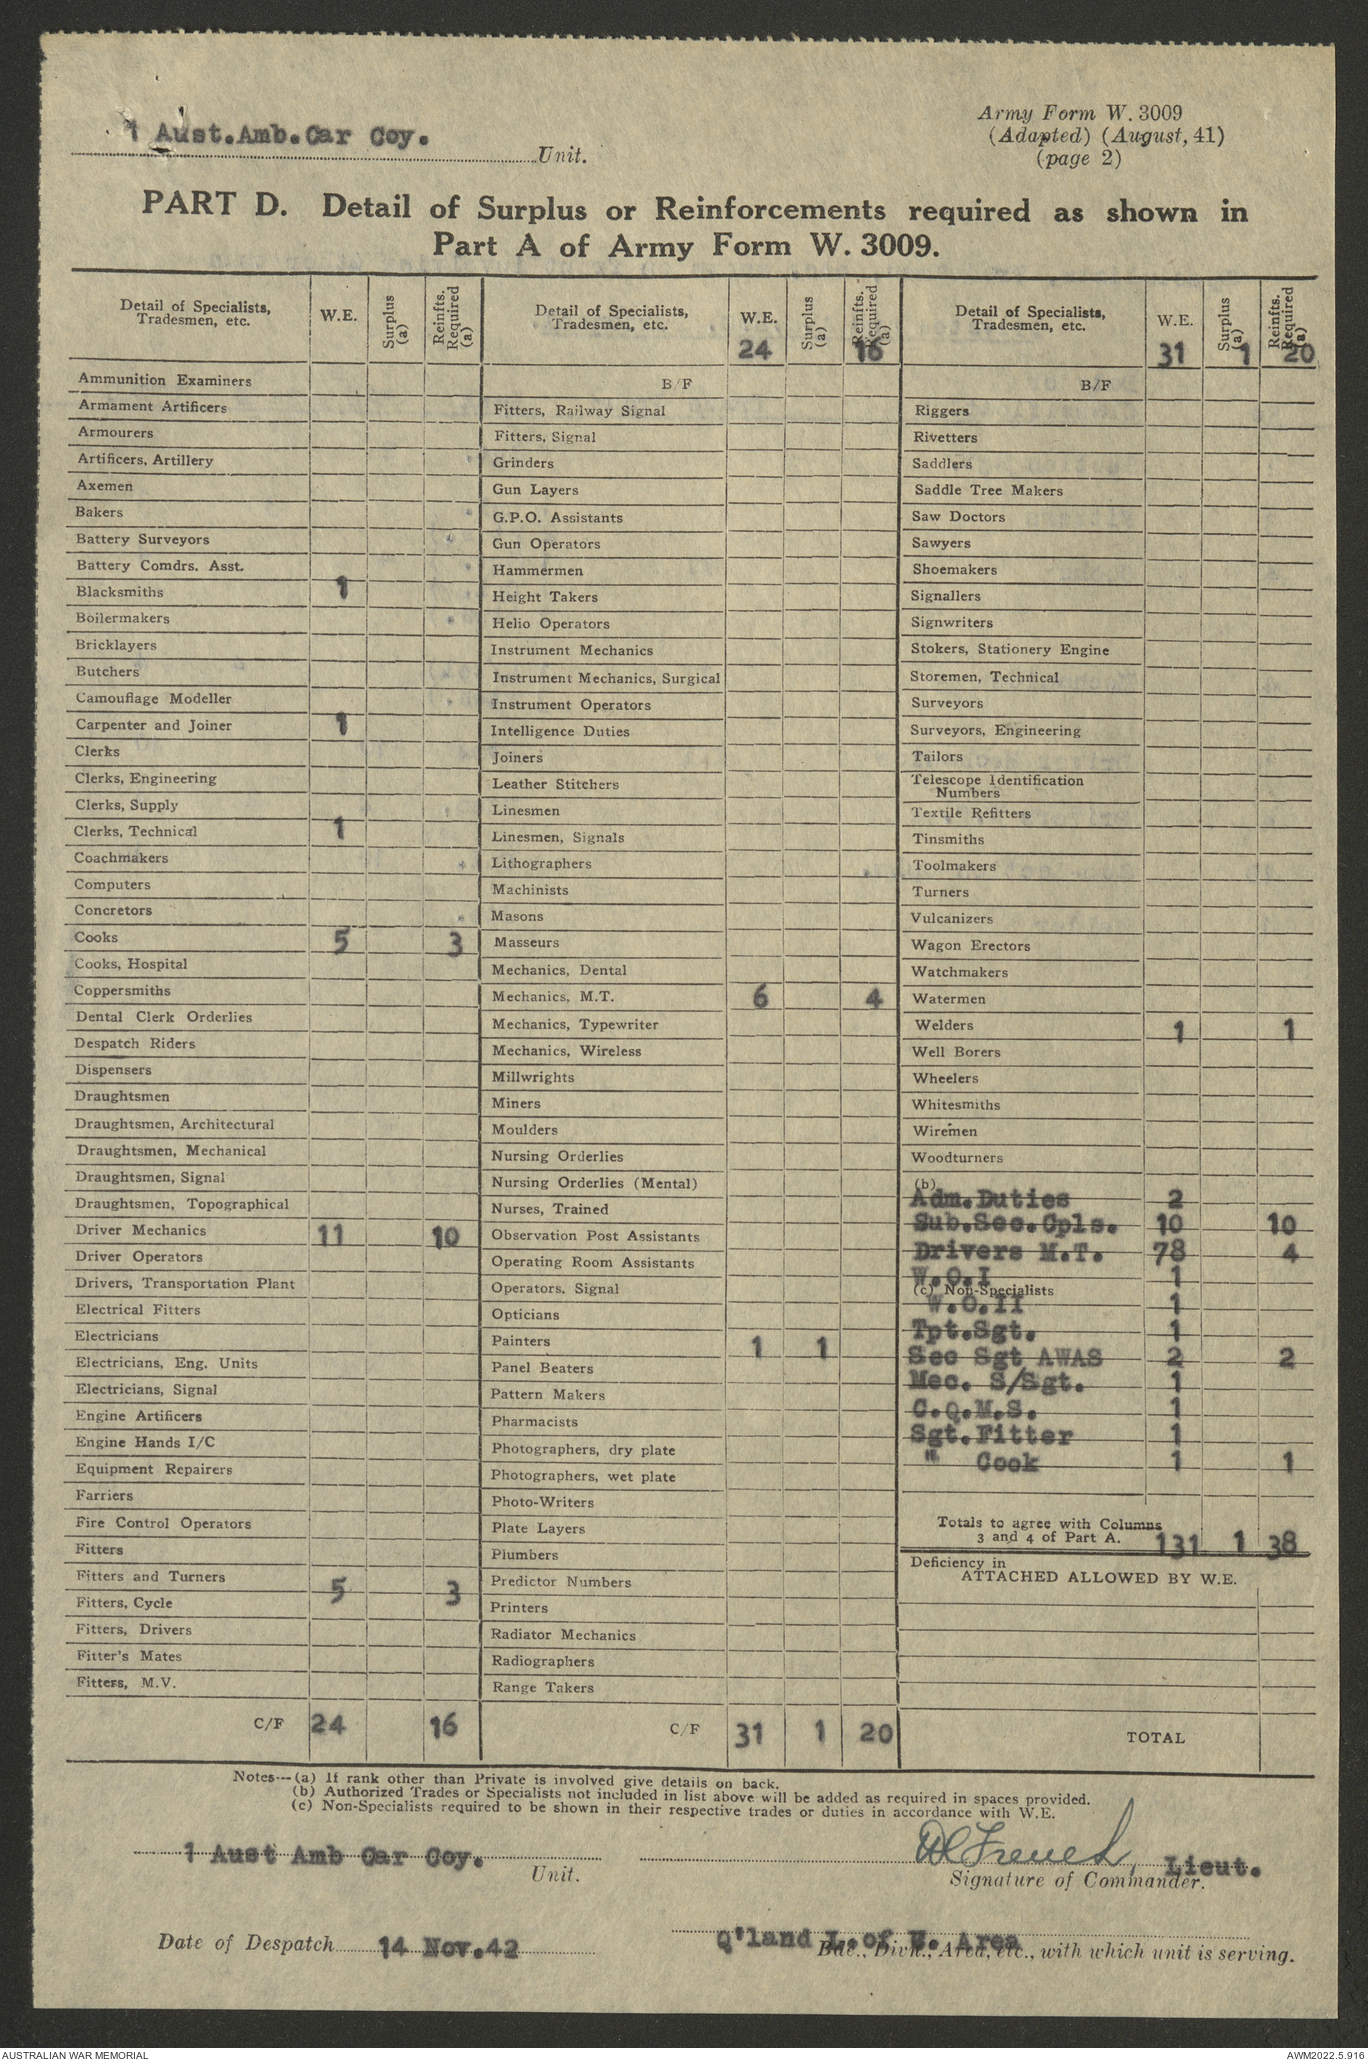 1 Aust.Amb.Car Coy.
Unit.
Army Form W. 3009
(Adapted) (August, 41)
(page 2)
PART D. Detail of Surplus or Reinforcements required as shown in
Part A of Army Form W. 3009.
Detail of Specialists, Tradesmen, etc. W.E. Surplus (a) Reinfts. Required (a)
Ammunition Examiners
Armament Artificers
Armourers
Artificers, Artillery
Axemen
Bakers
Battery Surveyors
Battery Comdrs. Asst.
Blacksmiths 1
Boilermakers
Bricklayers
Butchers
Camouflage Modeller
Carpenter and Joiner 1
Clerks
Clerks, Engineering
Clerks, Supply
Clerks, Technical 1
Coachmakers
Computers
Concretors
Cooks 5 3
Cooks, Hospital
Coppersmiths
Dental Clerk Orderlies
Despatch Riders
Dispensers
Draughtsmen
Draughtsmen, Architectural
Draughtsmen, Mechanical
Draughtsmen, Signal
Draughtsmen, Topographical
Driver Mechanics 11 10
Driver Operators
Drivers, Transportation Plant
Electrical Fitters
Electricians
Electricians, Eng. Units
Electricians, Signal
Engine Artificers
Engine Hands I/C
Equipment Repairers
Farriers
Fire Control Operators
Fitters
Fitters and Turners
Fitters, Cycle 5 3
Fitters, Drivers
Fitter's Mates
Fitters, M.V.
C/F 24 16
Detail of Specialists, Tradesmen, etc. W.E. Surplus (a) Reinfts. Required (a)
24 16
B/F
Fitters, Railway Signal
Fitters, Signal
Grinders
Gun Layers
G.P.O. Assistants
Gun Operators
Hammermen
Height Takers
Helio Operators
Instrument Mechanics
Instrument Mechanics, Surgical
Instrument Operators
Intelligence Duties
Joiners
Leather Stitchers
Linesmen
Linesmen, Signals
Lithographers
Machinists
Masons
Masseurs
Mechanics, Dental
Mechanics, M.T. 6 4
Mechanics, Typewriter
Mechanics, Wireless
Millwrights
Miners
Moulders
Nursing Orderlies
Nursing Orderlies (Mental)
Nurses, Trained
Observation Post Assistants
Operating Room Assistants
Operators. Signal
Opticians
Painters 1 1
Panel Beaters
Pattern Makers
Pharmacists
Photographers, dry plate
Photographers, wet plate
Photo-Writers
Plate Layers
Plumbers
Predictor Numbers
Printers
Radiator Mechanics
Radiographers
Range Takers
C/F 31 1 20
Detail of Specialists, Tradesmen, etc. W.E. Surplus (a) Reinfts. Required (a)
31 1 20
B/F
Riggers
Rivetters
Saddlers
Saddle Tree Makers
Saw Doctors
Sawyers
Shoemakers
Signallers
Signwriters
Stokers, Stationery Engine
Storemen, Technical
Surveyors
Surveyors, Engineering
Tailors
Telescope Identification
Numbers
Textile Refitters
Tinsmiths
Toolmakers
Turners
Vulcanizers
Wagon Erectors
Watchmakers
Watermen
Welders 1 1
Well Borers
Wheelers
Whitesmiths
Wiremen
Woodturners
(b)
Adm.Duties 2
Sub.Sec.Cpls. 10 10
Drivers M.T. 78 4
W.O.I 1
(c) Non-Specialists
W.O.II 1
Tpt.Sgt. 1
Sec Sgt AWAS 2 2
Mec. S/Sgt. 1
C.Q.M.S. 1
Sgt.Fitter 1
" Cook 1 1
Totals to agree with Columns
3 and 4 of Part A. 131 1 38
Deficiency in
ATTACHED ALLOWED BY W.E.
TOTAL
Notes---(a) If rank other than Private is involved give details on back.
(b) Authorized Trades or Specialists not included in list above will be added as required in spaces provided.
(c) Non-Specialists required to be shown in their respective trades or duties in accordance with W.E.
1 Aust Amb Car Coy.
Unit.
French, Lieut.
Signature of Commander.
Date of Despatch 14 Nov.42
Q'land L.of C. Area
Bde., Divn., Area, etc., with which unit is serving.
AUSTRALIAN WAR MEMORIAL
AWM2022.5.916